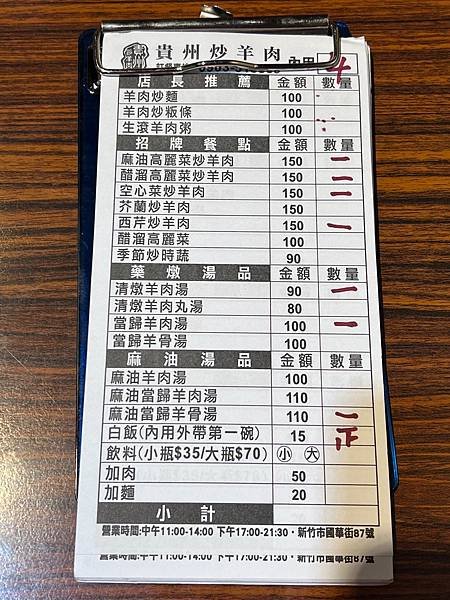 貴州炒羊肉 內用 4
店長推薦 金額 數量
羊肉炒麵 100
羊肉炒粄條 100
生滾羊肉粥 100
招牌餐點 金額 數量
麻油高麗菜炒羊肉 150 一
醋溜高麗菜炒羊肉 150 二
空心菜炒羊肉 150 一
芥蘭炒羊肉 150
西芹炒羊肉 150 一
醋溜高麗菜 100
季節炒時蔬 90
藥燉湯品 金額 數量
清燉羊肉湯 90 一
清燉羊肉丸湯 80
當歸羊肉湯 100 一
當歸羊骨湯 100
麻油湯品 金額 數量
麻油羊肉湯 100
麻油當歸羊肉湯 110
麻油當歸羊骨湯 110 一
白飯(內用外帶第一碗) 15 正
飲料(小瓶$35/大瓶$70) 小 大
加肉 50
加麵 20
小計
營業時間:中午11:00-14:00 下午17:00-21:30・新竹市國華街87號
營業時間:中午11:00-14:00 下午17:00-21:30・新竹市國華街87號